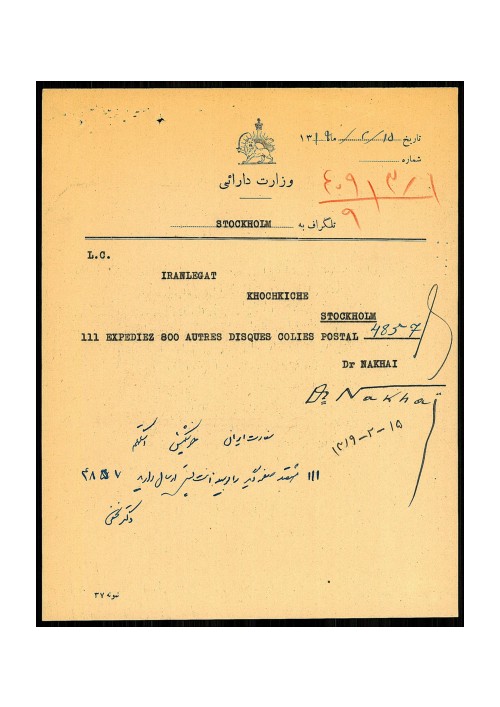 تاریخ ۱۵ / ۲ / ماه ۱۳۱۹
شماره
وزارت دارائی
تلگراف به STOCKHOLM
L.C.
IRANLEGAT
KHOCHKICHE
STOCKHOLM
111 EXPEDIEZ 800 AUTRES DISQUES COLIES POSTAL 4857
Dr NAKHAI
Dr Nakhai
۱۳۱۹-۲-۱۵
سفارت ایران
۱۱۱ هشتصد صفحه دیگر با پست ارسال دارید ۴۸۵۷
دکتر نخعی
نمونه ۳۷